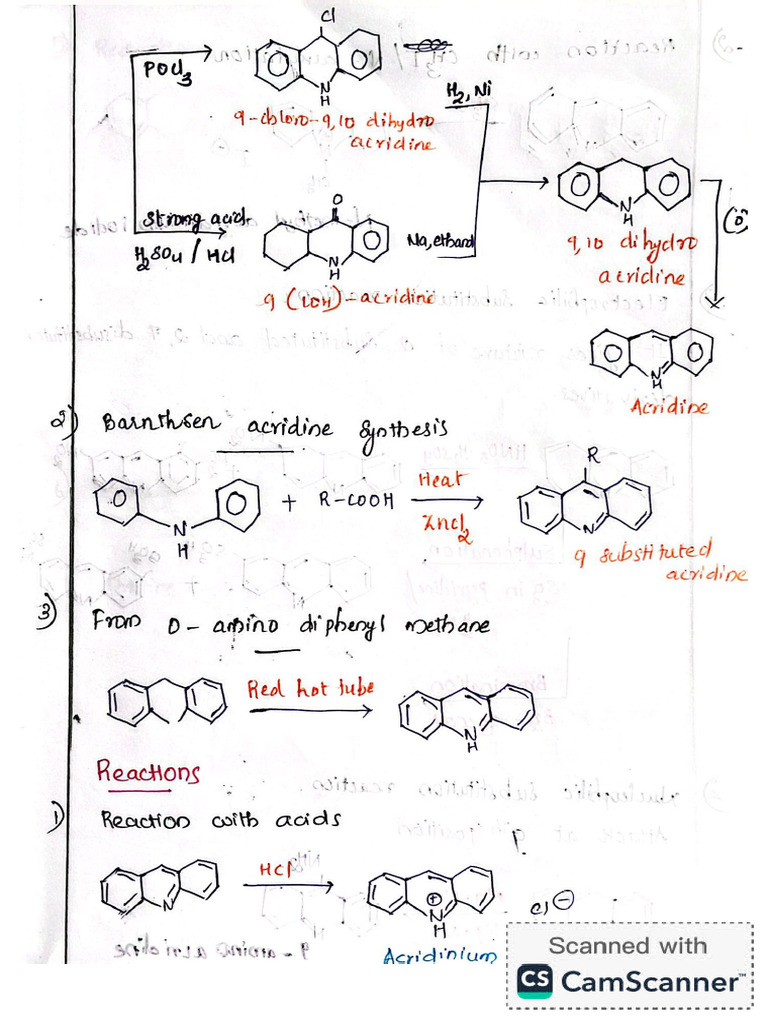 Cl
POCl3
N
H
9-chloro-9,10 dihydro
acridine
H2, Ni
strong acid
H2SO4 / HCl
O
N
H
9 (10H)-acridine
Na, ethanol
N
H
9,10 dihydro
acridine
(O)
N
H
Acridine
2) Barnthsen acridine synthesis
N
H
+ R-COOH
Heat
ZnCl2
R
N
9 substituted
acridine
3) From O-amino diphenyl methane
Red hot tube
N
H
Reactions
1) Reaction with acids
N
HCl
+
N
H
Cl -
Acridinium
Scanned with
CS CamScanner™